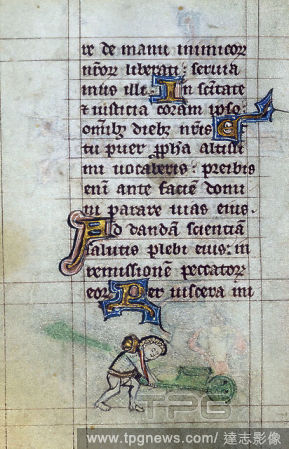 re de manu inimicoꝝ
nr̄oꝝ liberati: seruia
mus illi. In sc̄itate
⁊ iusticia coram ipso:
omībꝫ diebꝫ nr̄is. Et
tu puer ꝓph̄a altissi
mi uocaberis: preibis
enī ante faciē domi
ni parare uias eius.
Ad dandā scienciā
salutis plebi eius: in
remissionē peccatoꝝ
eoꝝ Per uiscera mi
TPG
www.tpgnews.com/ 達志影像